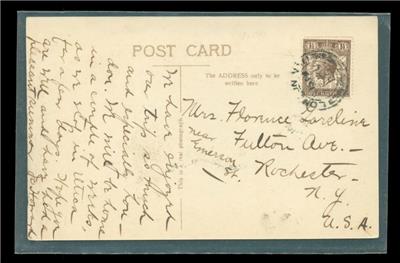 POST CARD
The ADDRESS only to be
written here
We have enjoyed
our trip so much
and especially Lon-
don. We will be home
in a couple of weeks,
as we sail in
for a few days. Hope you
are well and have had a
pleasant summer.
Mrs. Florence
Fulton Ave. —
near
Emerson
St.
Rochester —
N.Y.
U.S.A.